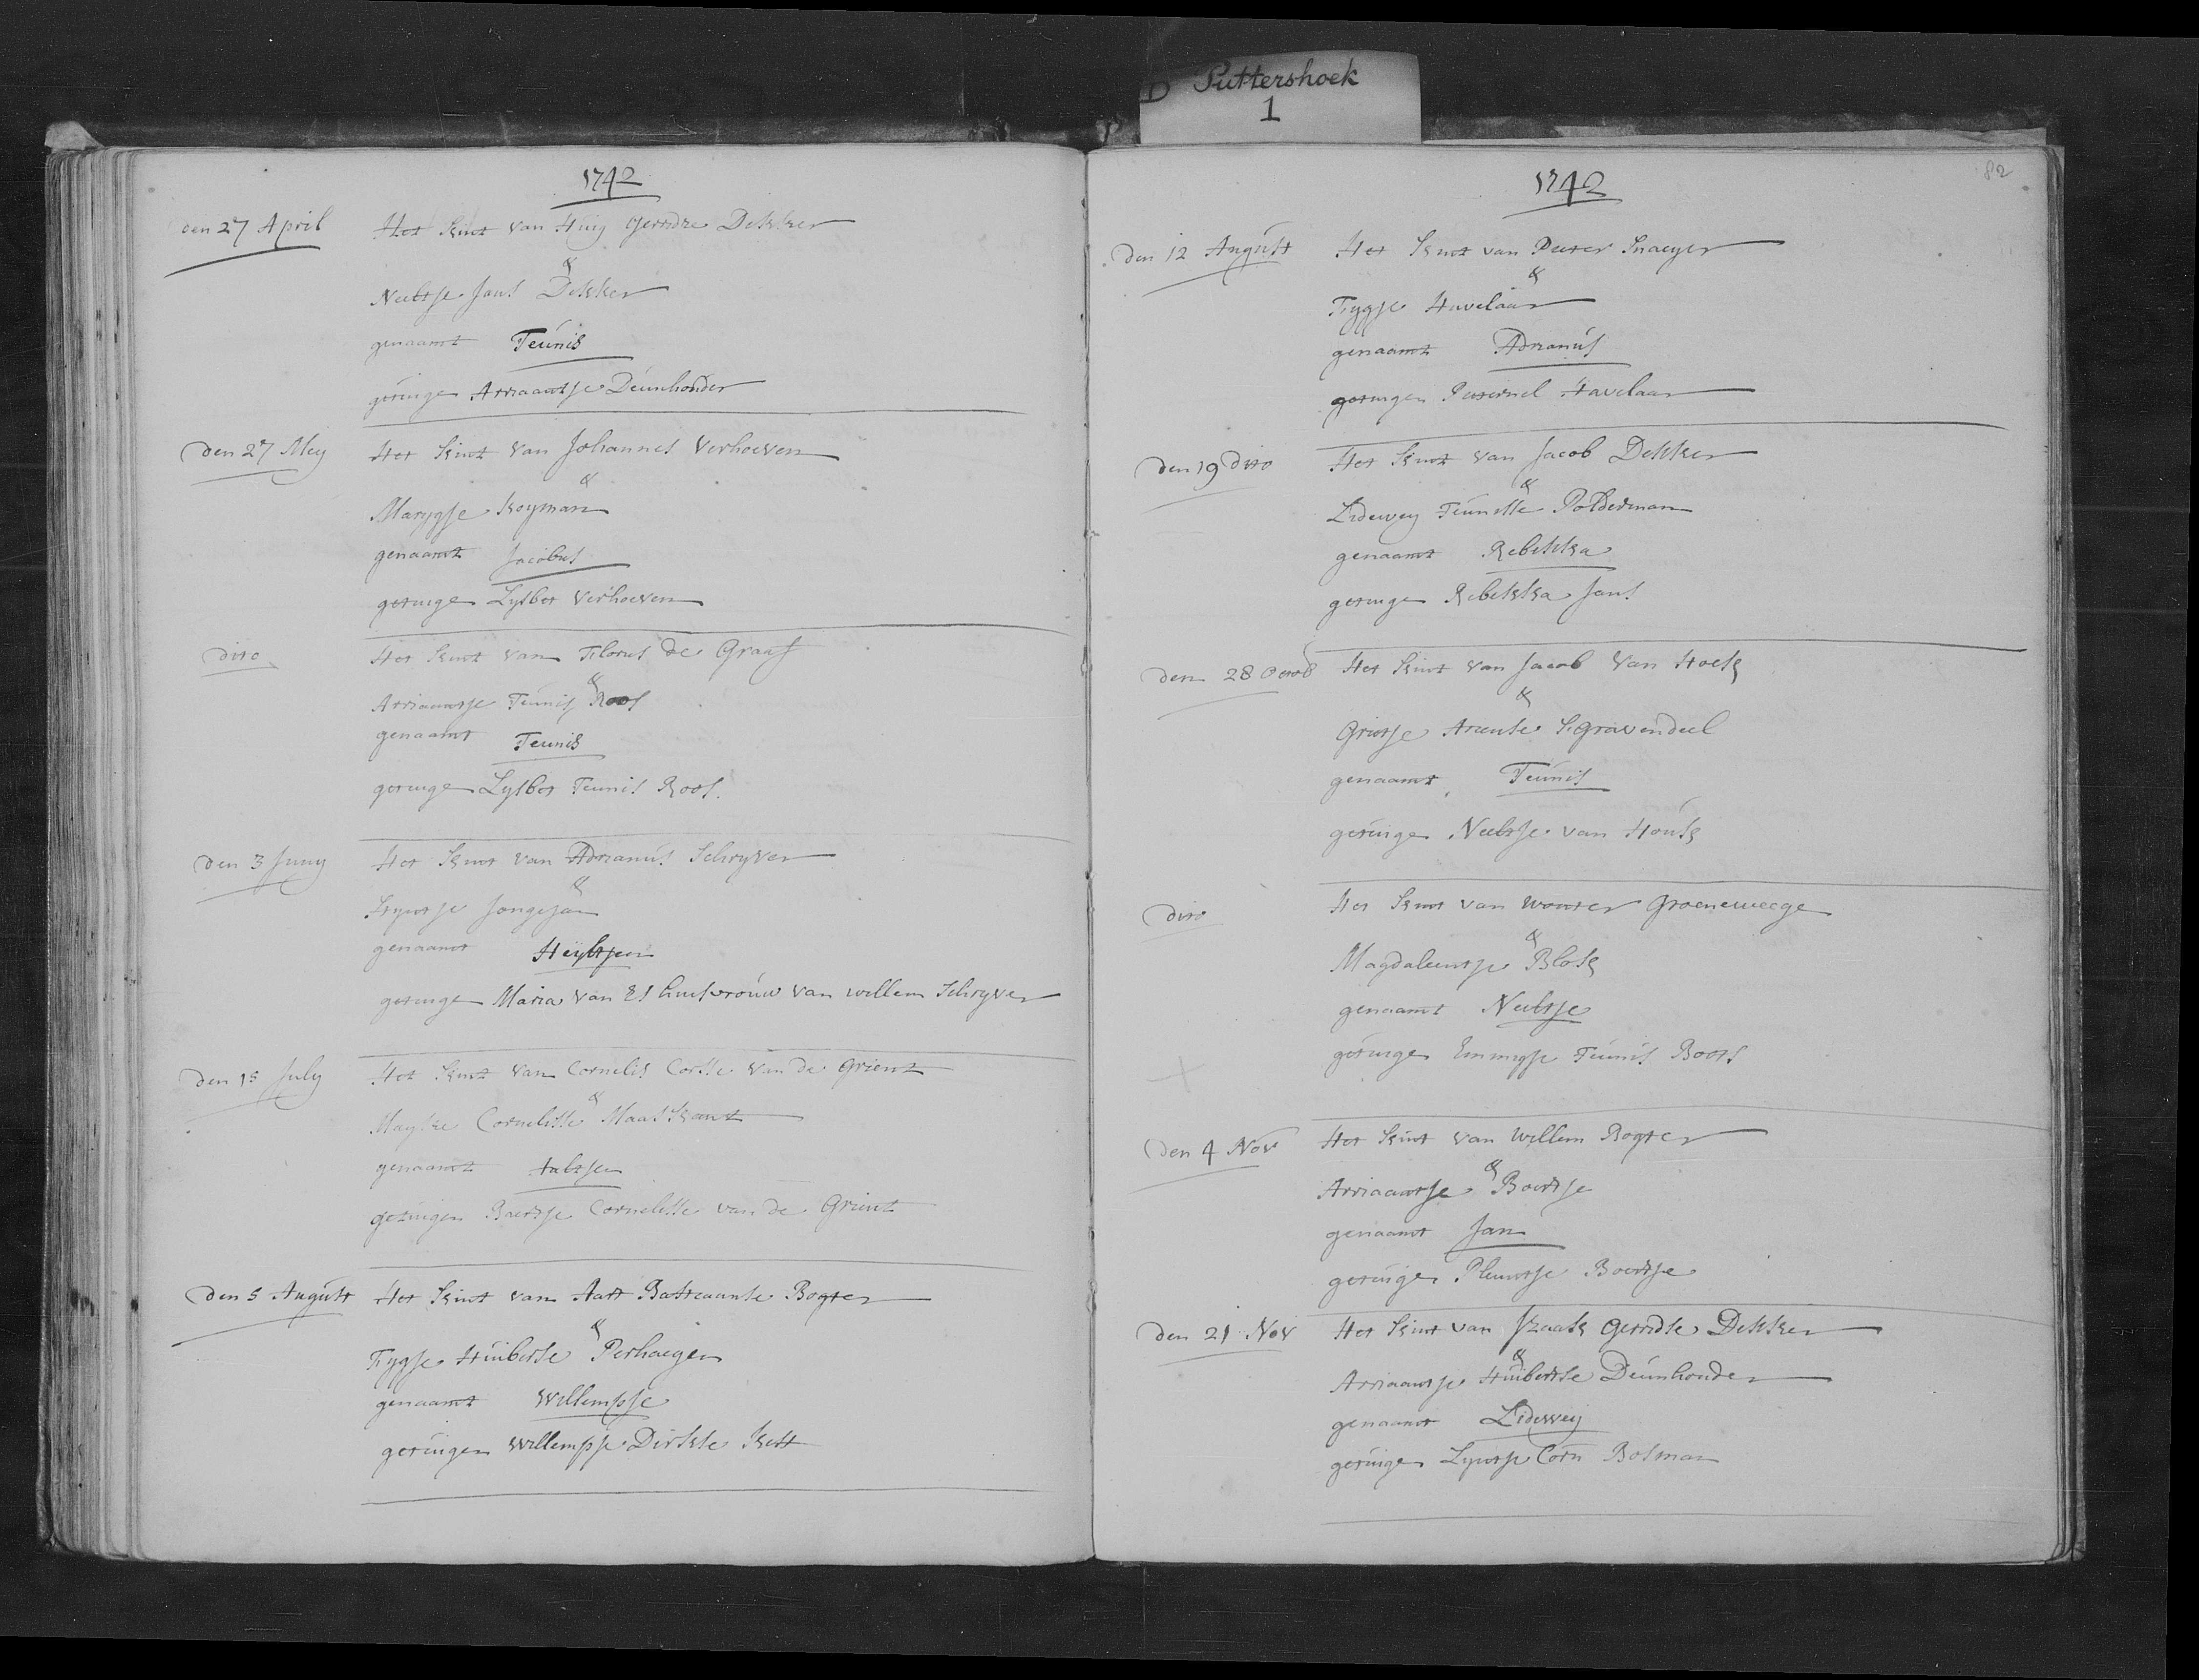 D Puttershoek
1
1742
den 27 April Het Kint van Huig Gerridze Dekker
&
Neeltje Jans Dekker
genaamt Teunis
getuige Arriaantje Deunhouder
den 27 Mey Het Kint van Johannes Verhoeven
&
Marygje Koyman
genaamt Jacobus
getuige Lysbet Verhoeven
dito Het Kint van Florus de Graaf
&
Arriaantje Teunis Roos
genaamt Teunis
getuige Lysbet Teunis Roos.
den 3 Juny Het Kint van Adrianus Schryver
&
Jongejan
genaamt Heyltjen
getuige Maria van Es huisvrouw van willem Schryver
den 15 July Het Kint van Cornelis Corsse van de Grient
&
Mayke Cornelisse Maaskant
genaamt
getuigen Baertje Cornelisse van de Grient
den 5 August Het Kint van Aart Bastiaanse Bogter
&
Fygje Huiberse Verhaegen
genaamt Willempje
getuigen Willempje Dirkse Kest
82
1742
den 12 August Het Kint van Pieter Snaeyer
&
Fygje Havelaar
genaamt Adrianus
getuigen Pieternel Havelaar
den 19 dito Het Kint van Jacob Dekker
&
Lidewey Teunisse Polderman
genaamt Rebekka
getuige Rebekka Jans
den 28 Octob Het Kint van Jacob Van Hoek
&
Grietje Areense Sgravendeel
genaamt Teunis
getuige Neeltje van Houk
dito Het Kint van Wouter Groeneweege
&
Magdaleentje Blok
genaamt Neeltje
getuige Emmigje Teunis Boots
den 4 Nov Het Kint van Willem Bogter
&
Arriaantje Boertje
genaamt Jan
getuige Pleuntje Boertje
den 21 Nov Het Kint van Izaak Gerridse Dekker
&
Arriaantje Huibertse Deunhouder
genaamt Lidewey
getuige Corn Bosman